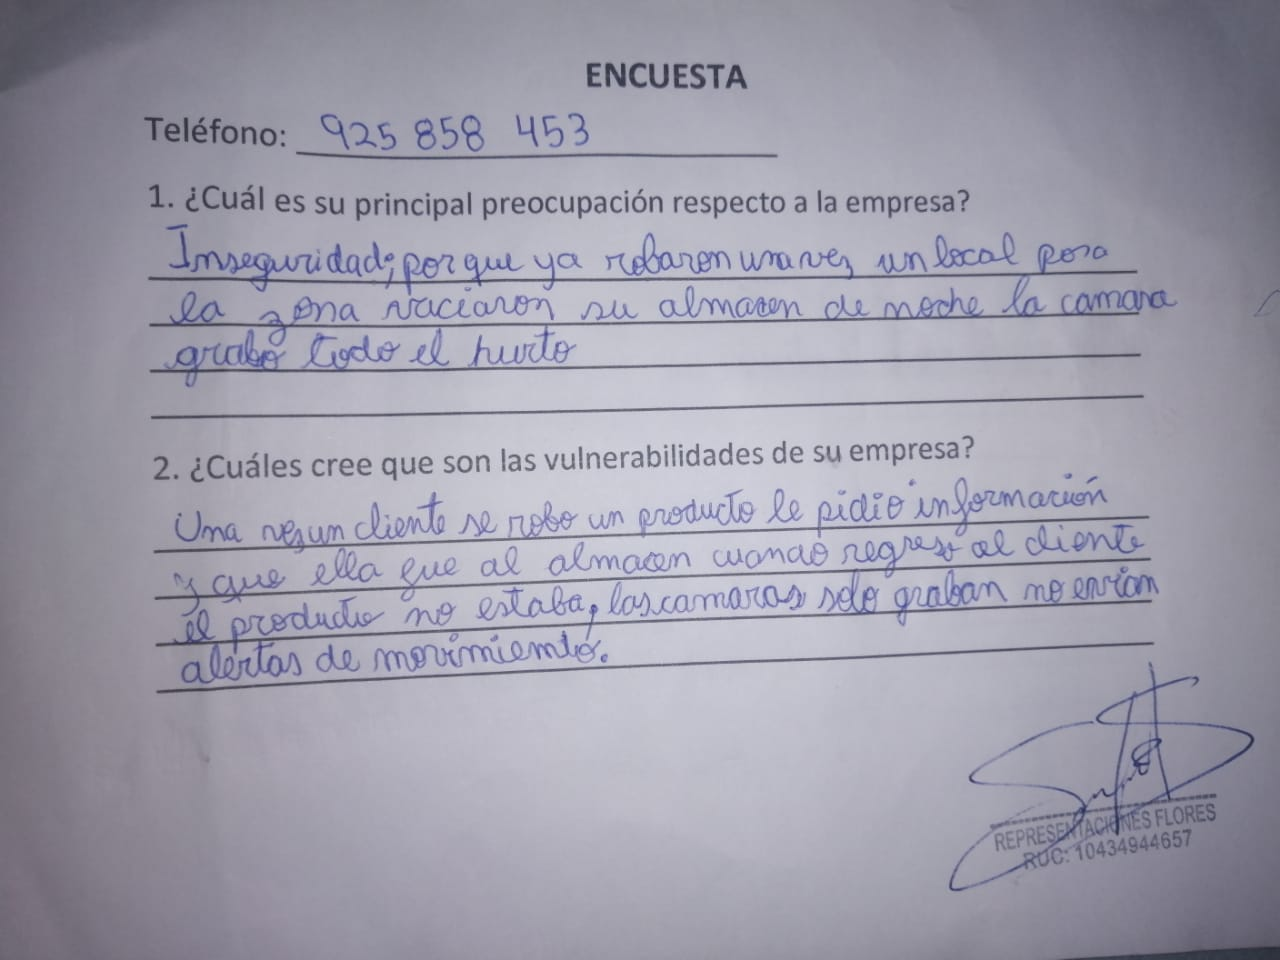 ENCUESTA
Teléfono: 925 858 453
1. ¿Cuál es su principal preocupación respecto a la empresa?
Inseguridad; porque ya robaron una vez, un local pora
la zona vaciaron su almacen de noche la camara
grabó todo el hurto
2. ¿Cuáles cree que son las vulnerabilidades de su empresa?
Una vez un cliente se robo un producto le pidió información
y que ella que al almacen cuando regreso el cliente
el producto no estaba, las camaras solo graban no envian
alertas de movimiento.
REPRESENTACIONES FLORES
RUC: 10434944657